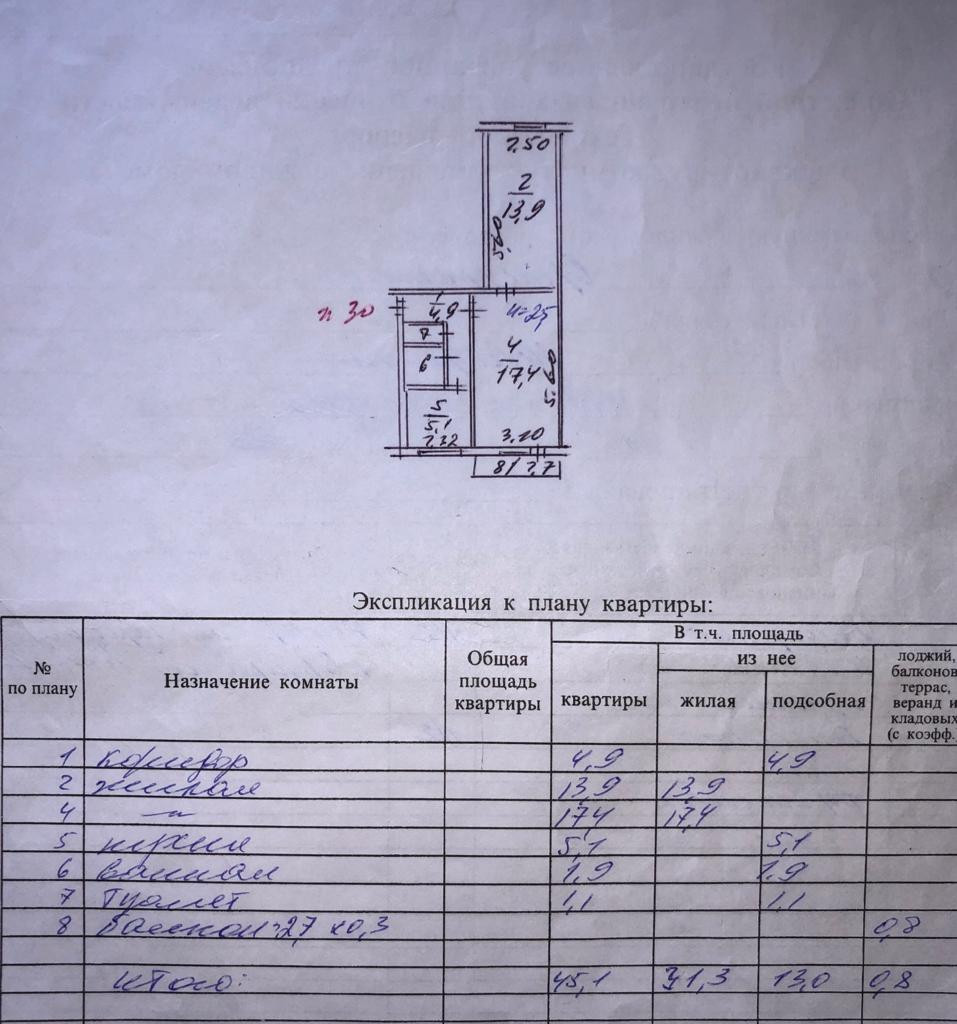 2,50
2
13,9
5,60
п 30
1
4,9
h=2,5
7
6
4
17,4
5.60
5
5,1
2,32
3.20
8/2,7
Экспликация к плану квартиры:
№ по плану
Назначение комнаты
Общая площадь квартиры
В т.ч. площадь
квартиры
из нее
жилая
подсобная
лоджий, балконов, террас, веранд и кладовых (с коэфф.)
1 коридор 4,9 4,9
2 жилая 13,9 13,9
4 —〃— 17,4 17,4
5 кухня 5,1 5,1
6 ванная 1,9 1,9
7 туалет 1,1 1,1
8 балкон=2,7 х0,3 0,8
Итого: 45,1 31,3 13,0 0,8